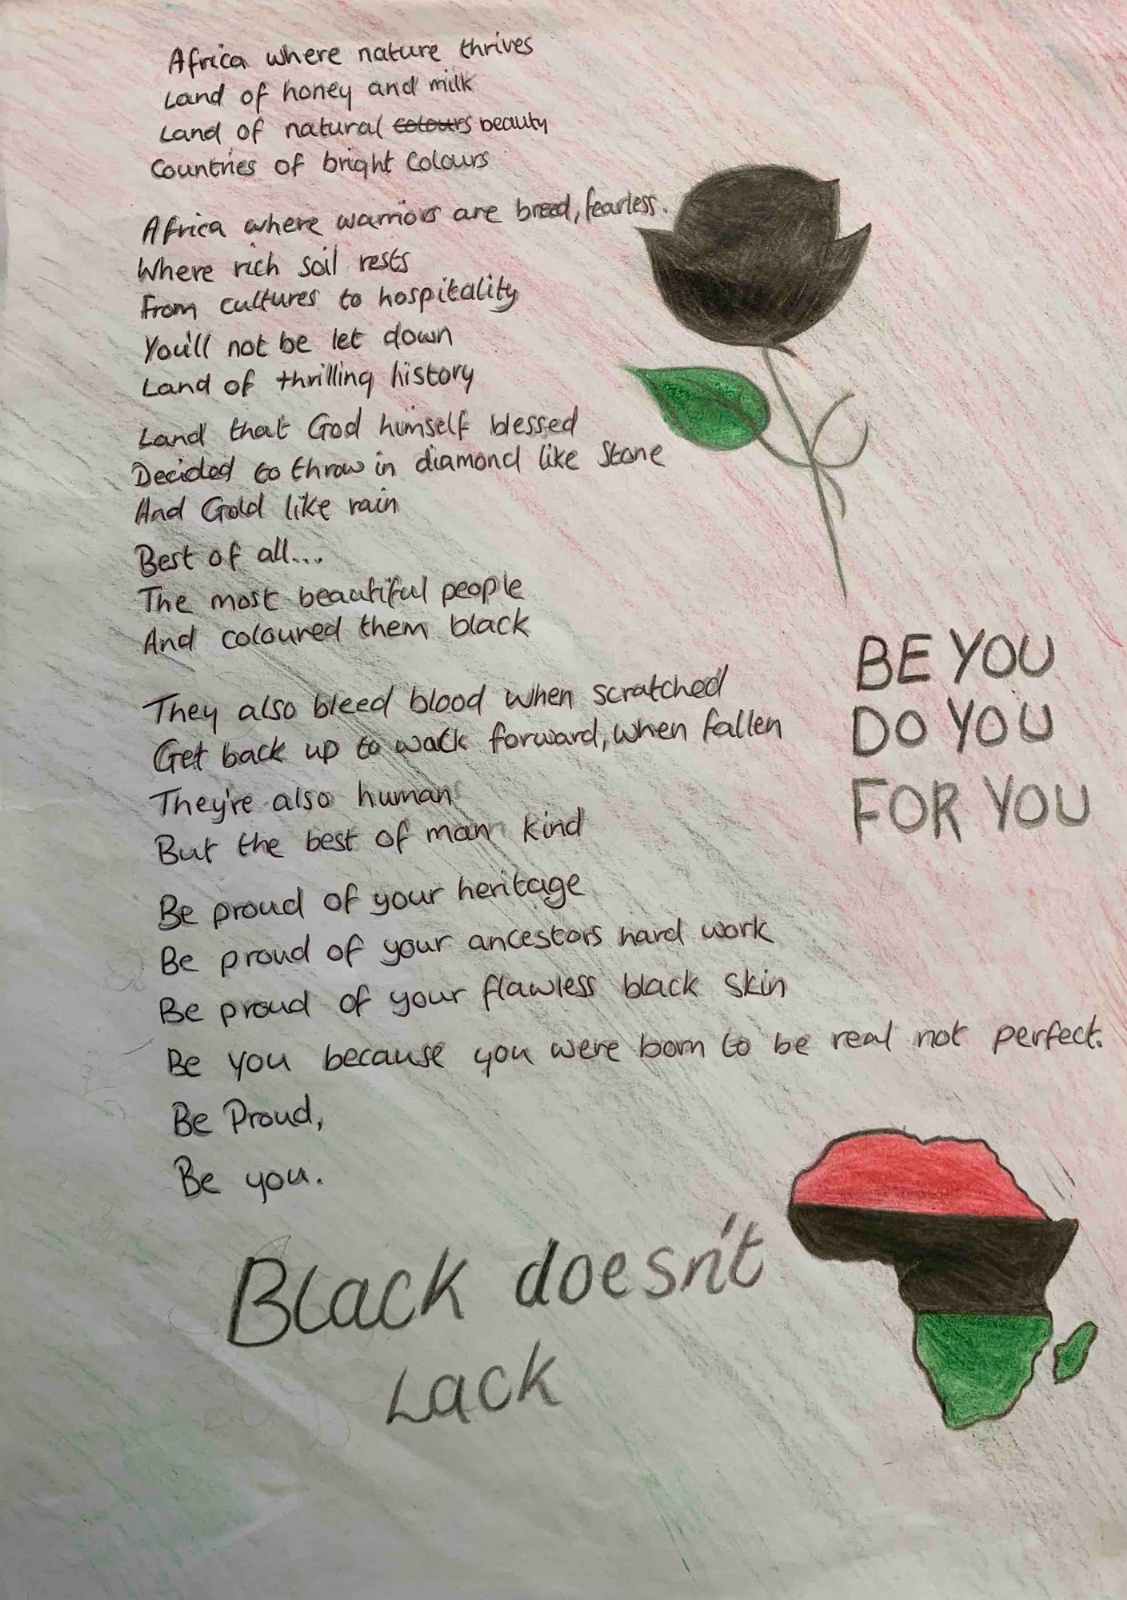 Africa where nature thrives
Land of honey and milk
Land of natural colours beauty
Countries of bright Colours
Africa where warriors are breed, fearless.
Where rich soil rests
From cultures to hospitality
You'll not be let down
Land of thrilling history
Land that God himself blessed
Decided to throw in diamond like stone
And Gold like rain
Best of all...
The most beautiful people
And coloured them black
They also bleed blood when scratched
Get back up to walk forward, when fallen
They're also human
But the best of man kind
Be proud of your heritage
Be proud of your ancestors hard work
Be proud of your flawless black skin
Be you because you were born to be real not perfect.
Be Proud,
Be you.
BE YOU
DO YOU
FOR YOU
Black doesn't
Lack